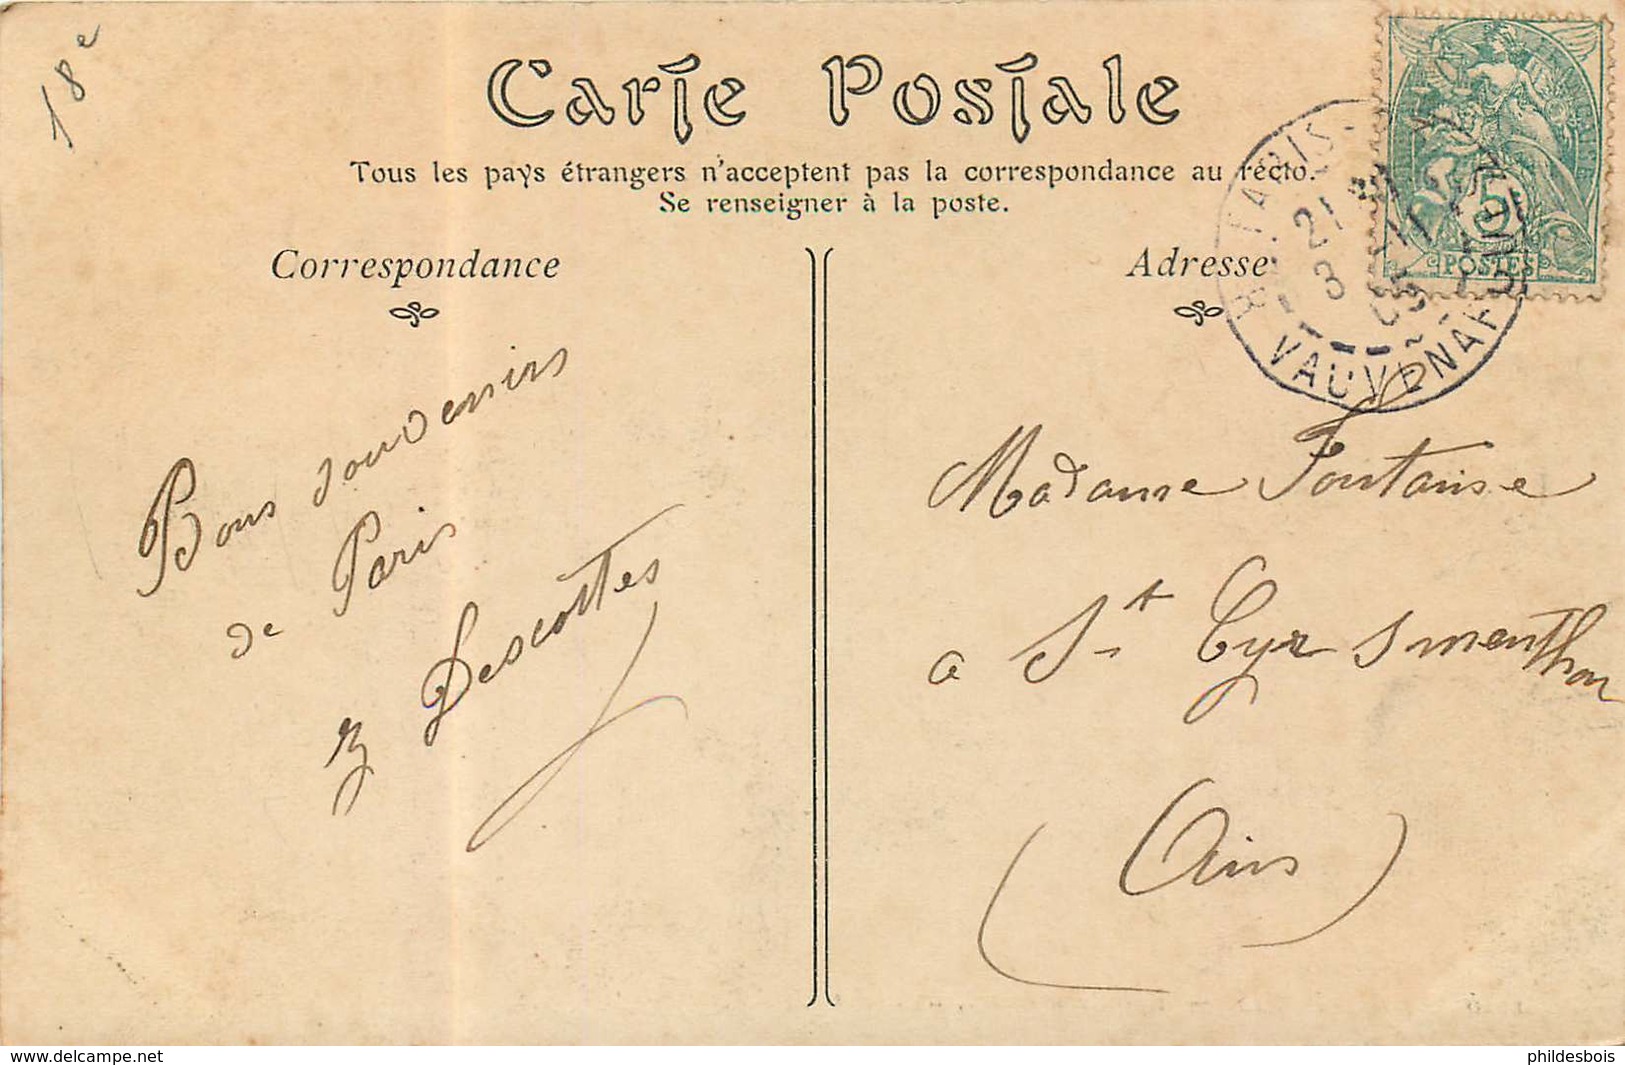 18e
Carte Postale
Tous les pays étrangers n'acceptent pas la correspondance au recto.
Se renseigner à la poste.
Correspondance
Adresse
Bons souvenirs
de Paris
Descottes
Madame Fontaine
a St Cyr s menthon
(Ain)
PARIS
21
3
VAUVENARGUES
5
POSTES
www.delcampe.net
phildesbois